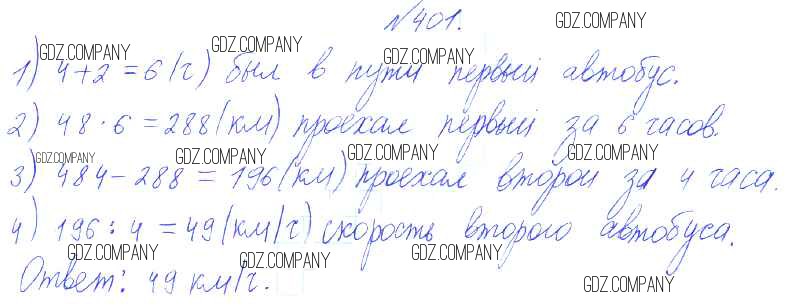 №401.
1) 4+2=6(ч) был в пути первый автобус.
2) 48·6=288(км) проехал первый за 6 часов.
3) 484-288=196(км) проехал второй за 4 часа.
4) 196:4=49(км/ч) скорость второго автобуса.
Ответ: 49 км/ч.
GDZ.COMPANY
GDZ.COMPANY
GDZ.COMPANY
GDZ.COMPANY
GDZ.COMPANY
GDZ.COMPANY
GDZ.COMPANY
GDZ.COMPANY
GDZ.COMPANY
GDZ.COMPANY
GDZ.COMPANY
GDZ.COMPANY
GDZ.COMPANY
GDZ.COMPANY